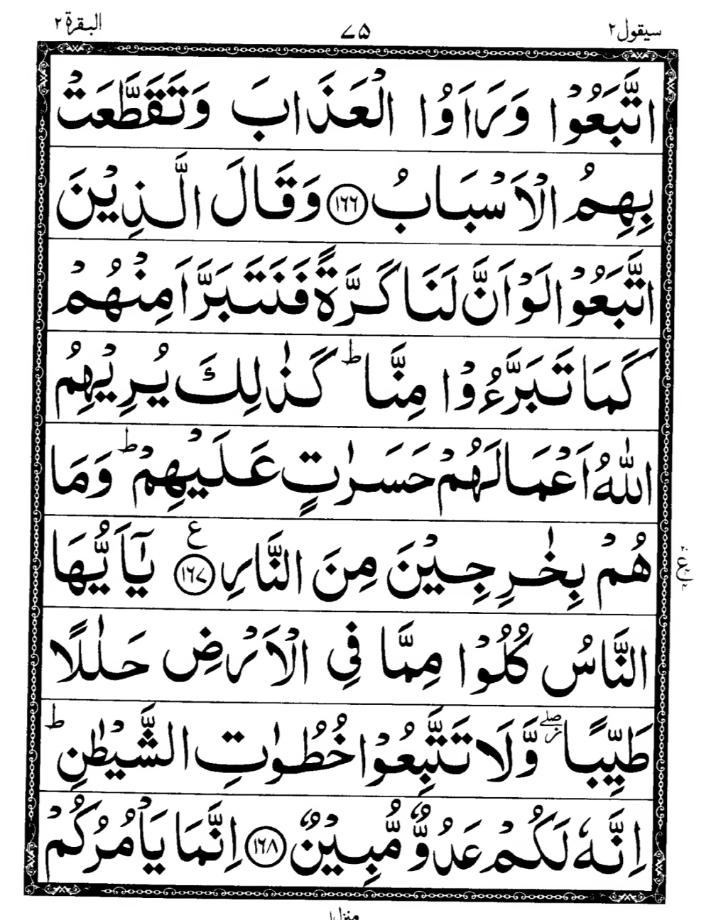 سيقول ٢ ٧٥ البقرة ٢
اتَّبَعُوْا وَرَاَوُا الْعَذَابَ وَتَقَطَّعَتْ
بِهِمُ الْاَسْبَابُ ۝١٦٦ وَقَالَ الَّذِيْنَ
اتَّبَعُوْا لَوْ اَنَّ لَنَا كَرَّةً فَنَتَبَرَّاَ مِنْهُمْ
كَمَا تَبَرَّءُوْا مِنَّا ؕ كَذٰلِكَ يُرِيْهِمُ
اللّٰهُ اَعْمَالَهُمْ حَسَرٰتٍ عَلَيْهِمْ ؕ وَمَا
هُمْ بِخٰرِجِيْنَ مِنَ النَّارِ ۝١٦٧ ع يٰۤاَيُّهَا
النَّاسُ كُلُوْا مِمَّا فِي الْاَرْضِ حَلٰلًا
طَيِّبًا ۖ وَّلَا تَتَّبِعُوْا خُطُوٰتِ الشَّيْطٰنِ ؕ
اِنَّهٗ لَكُمْ عَدُوٌّ مُّبِيْنٌ ۝١٦٨ اِنَّمَا يَاْمُرُكُمْ
منزل ١